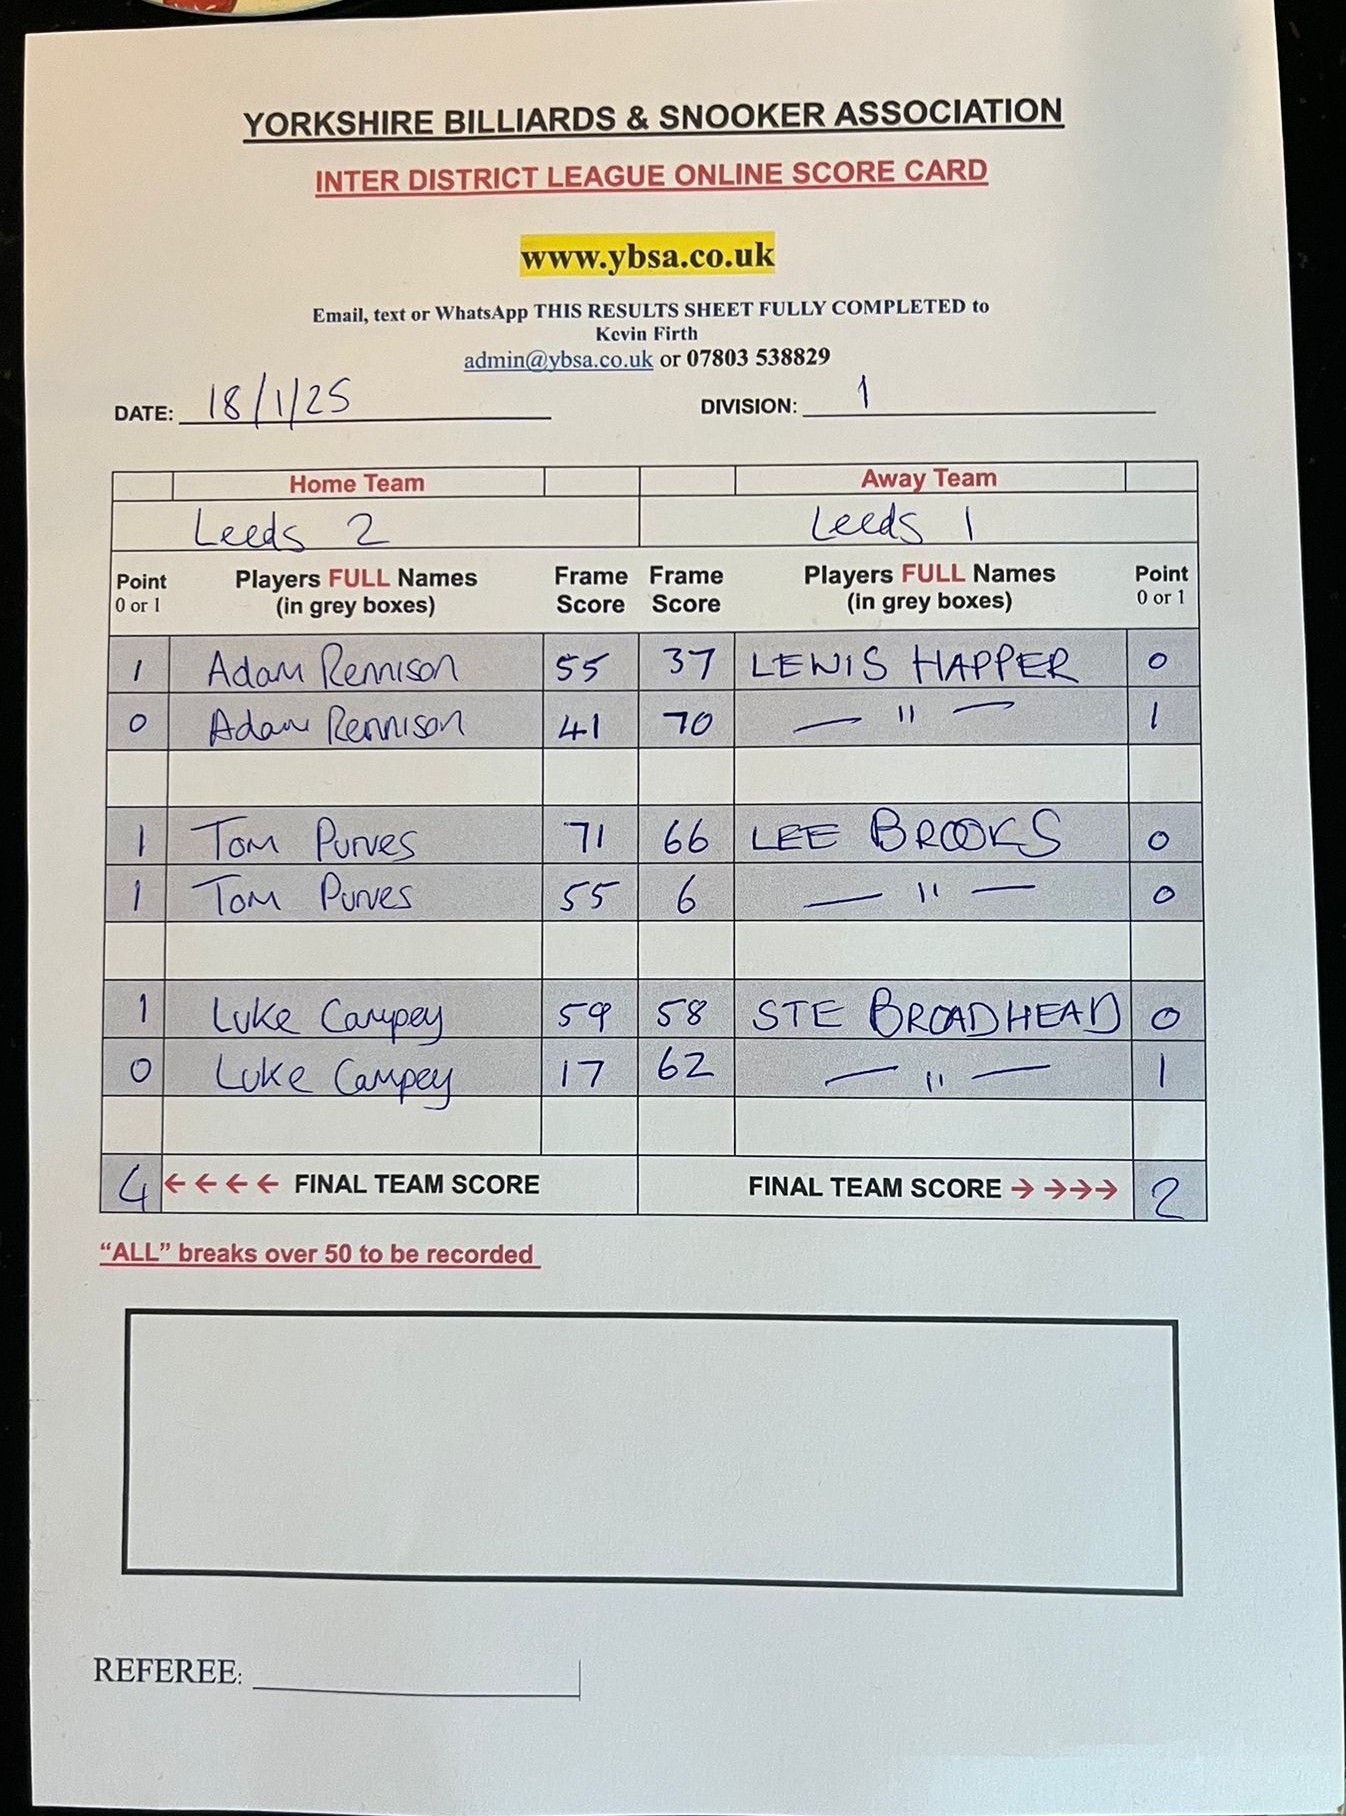 YORKSHIRE BILLIARDS & SNOOKER ASSOCIATION
INTER DISTRICT LEAGUE ONLINE SCORE CARD
www.ybsa.co.uk
Email, text or WhatsApp THIS RESULTS SHEET FULLY COMPLETED to
Kevin Firth
admin@ybsa.co.uk or 07803 538829
DATE: 18/1/25 DIVISION: 1
Home Team Away Team
Leeds 2 Leeds 1
Point Players FULL Names Frame Frame Players FULL Names Point
0 or 1 (in grey boxes) Score Score (in grey boxes) 0 or 1
1 Adam Rennison 55 37 LEWIS HAPPER 0
0 Adam Rennison 41 70 — " — 1
1 Tom Purves 71 66 LEE BROOKS 0
1 Tom Purves 55 6 — " — 0
1 Luke Campey 59 58 STE BROADHEAD 0
0 Luke Campey 17 62 — " — 1
4 ←←←← FINAL TEAM SCORE FINAL TEAM SCORE →→→→ 2
“ALL” breaks over 50 to be recorded
REFEREE: